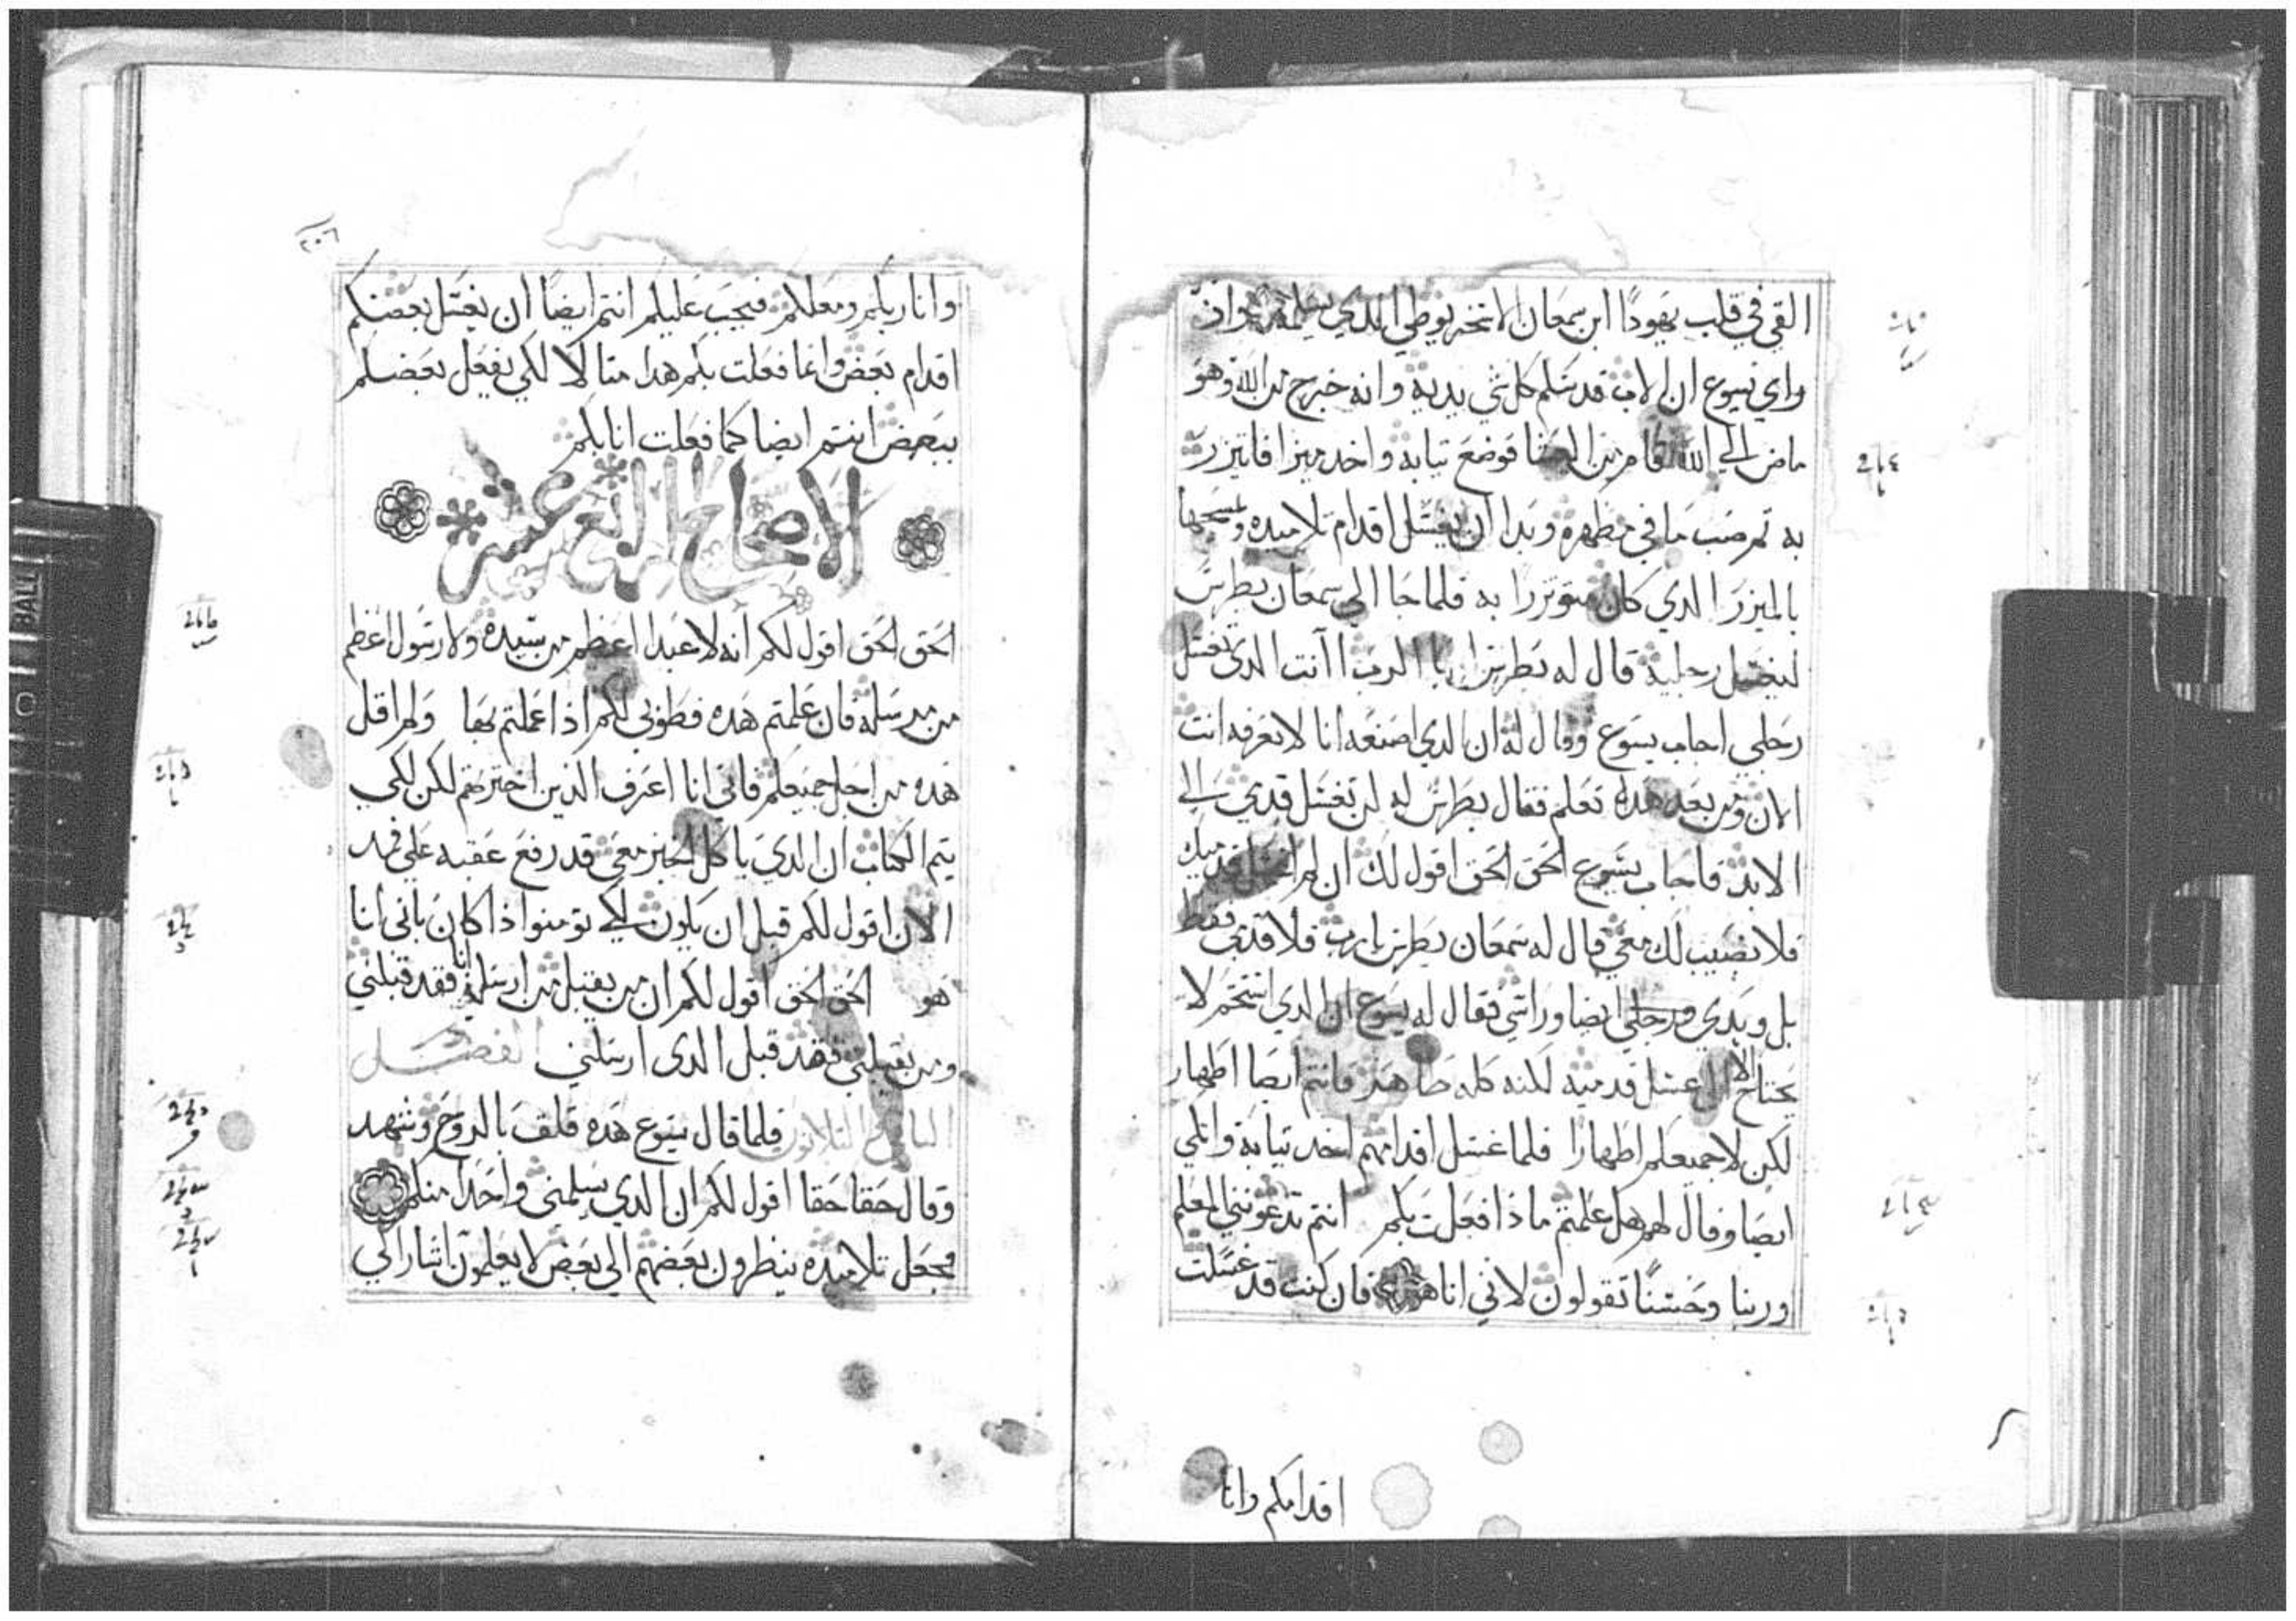 القي في قلب يهودا ابن سمعان الاسخريوطي الذي يسلمه واذ
راي يسوع ان الاب قد سلم كل شي بيديه وانه خرج من الله وهو
ماض الى الله قام من العشا فوضع تيابه واخد ميزرا فاتيزر
به تم صب ما في مطهره وبدا ان يغسل اقدام تلاميده ويمسحها
بالميزر الدي كان متوتزرا به فلما جا الي سمعان بطرس
ليغسل رجليه قال له بطرس يا الرب اانت الدي تغسل
رجلي اجاب يسوع وقال له ان الدي اصنعه انا لا تعرفه انت
الان ومن بعد هدا تعلم فقال بطرس له لن تغسل قدمي الى
الابد فاجاب يسوع الحق الحق اقول لك ان لم اغسل قدميك
فلا نصيب لك معي قال له سمعان بطرس يا رب فلا قدمي فقط
بل ويدي ورجلي ايضا وراسي فقال له يسوع ان الدي استحم لا
يحتاج الا الى غسل قدميه لكنه كله طاهر فانتم ايضا اطهار
لكن لا جميعكم اطهارا فلما غسل اقدامهم اخد تيابه واتكي
ايضا وقال لهم هل علمتم ماذا فعلت بكم انتم تدعونني المعلم
وربنا وحسنًا تقولون لاني انا هو فان كنت قد غسلت
اقدامكم وانا
٢٠٦
وانا ربكم ومعلمكم فيجب عليكم انتم ايضًا ان يغسل بعضكم
اقدام بعض وانما فعلت بكم هدا متالا لكي يفعل بعضكم
ببعض انتم ايضا كما فعلت انا بكم
الاصحاح الرابع عشر
الحق الحق اقول لكم انه لا عبدا اعظم من سيده ولا رسول اعظم
من مرسله فان علمتم هده فطوبى لكم اذا عملتم بها ولم اقل
هده من اجل جميعكم فاني انا اعرف الذين اخترتهم لكن لكي
يتم الكتاب ان الدي ياكل الخبز معي قد رفع عقبه علي فمن
الان اقول لكم قبل ان يكون لكي تومنوا اذا كان باني انا
هو الحق الحق اقول لكم ان من يقبل من ارسله انا فقد قبلني
ومن يقبلني فقد قبل الدي ارسلني الفصل
التلاتون فلما قال يسوع هده قلق بالروح وشهد
وقال حقا حقا اقول لكم ان الدي يسلمني واحدا منكم
فجعل تلاميده ينظرون بعضهم الى بعض لا يعلمون اشار الي